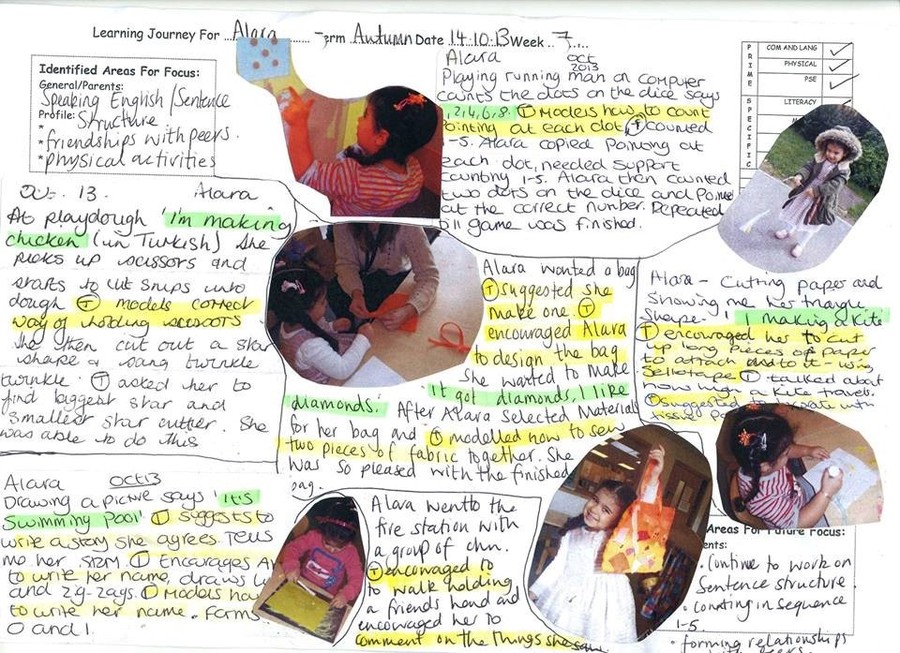 Learning Journey For Alara Term Autumn Date 14.10.13 Week 7
Identified Areas For Focus:
General/Parents:
Speaking English/Sentence
Profile: Structure.
* friendships with peers.
* physical activities
PRIME
COM AND LANG
PHYSICAL
PSE
SPECIFIC
LITERACY
Alara Oct 2013
Playing running man on computer
counts the dots on the dice says
1,2,4,6,8. (T) Models how to count
pointing at each dot, counted
1-5. Alara copied pointing at
each dot, needed support
counting 1-5. Alara then counted
two dots on the dice and pointed
at the correct number. Repeated
till game was finished.
Oct. 13. Alara
At playdough 'I'm making
chicken' (in Turkish) she
picks up scissors and
starts to cut snips into
dough (T) models correct
way of holding scissors
She then cut out a star
shape & sang twinkle
twinkle. (T) asked her to
find biggest star and
smallest star cutter. She
was able to do this
Alara wanted a bag
(T) suggested she
make one. (T)
encouraged Alara
to design the bag
She wanted to make
diamonds. 'It got diamonds, I like
After Alara selected material
for her bag and (T) modelled how to sew
two pieces of fabric together. She
was so pleased with the finished
bag.
Alara - Cutting paper and
showing me her triangle
shape. 'I making a kite
(T) encouraged her to cut
up long pieces of paper
to attach to it - using
Sellotape (T) talked about
how high a kite travels.
(T) suggested
tissue
Alara Oct 13
Drawing a picture says 'it's
Swimming Pool' (T) suggests to
write a story she agrees. Tells
me her story. (T) Encourages
to write her name, draws
and zig-zags. (T) Models how
to write her name. Forms
O and l.
Alara went to the
fire station with
a group of chn.
(T) encouraged to
to walk holding
a friends hand and
encouraged her to
comment on the things she saw
Areas For Future Focus:
. Continue to work on
Sentence structure.
. counting in sequence
1-5.
. forming relationships
with peers